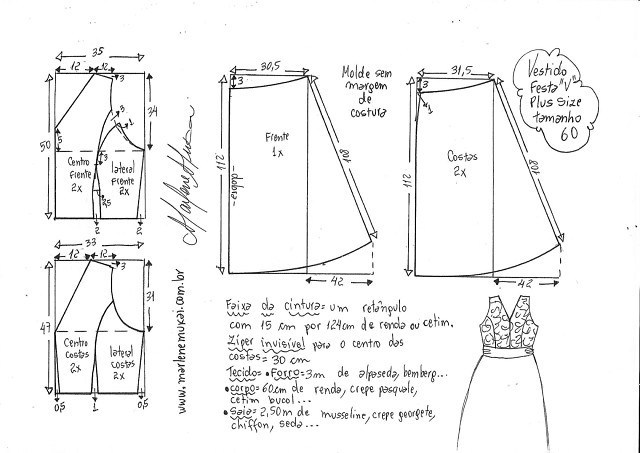 35
12
12
3
3
1
34
50
5
Centro
frente
2x
3
lateral
frente
2x
2,5
2
2
33
12
12
3
31
47
Centro
costas
2x
lateral
costas
2x
0,5
1
0,5
www.marlenemukai.com.br
30,5
3
Frente
1x
112
-dobra-
108
42
Molde sem
margem
de
costura
31,5
3
1
Costas
2x
112
108
42
Vestido
Festa "V"
Plus size
tamanho
60
Faixa da cintura = um retângulo
com 15 cm por 124cm de renda ou cetim.
Zíper invisível para o centro das
costas = 30 cm
Tecido: • Forro = 3m de alpaseda, bemberg...
• corpo = 60cm de renda, crepe pasquale,
cetim bucol...
• Saia = 2,50m de musseline, crepe georgete,
chiffon, seda...